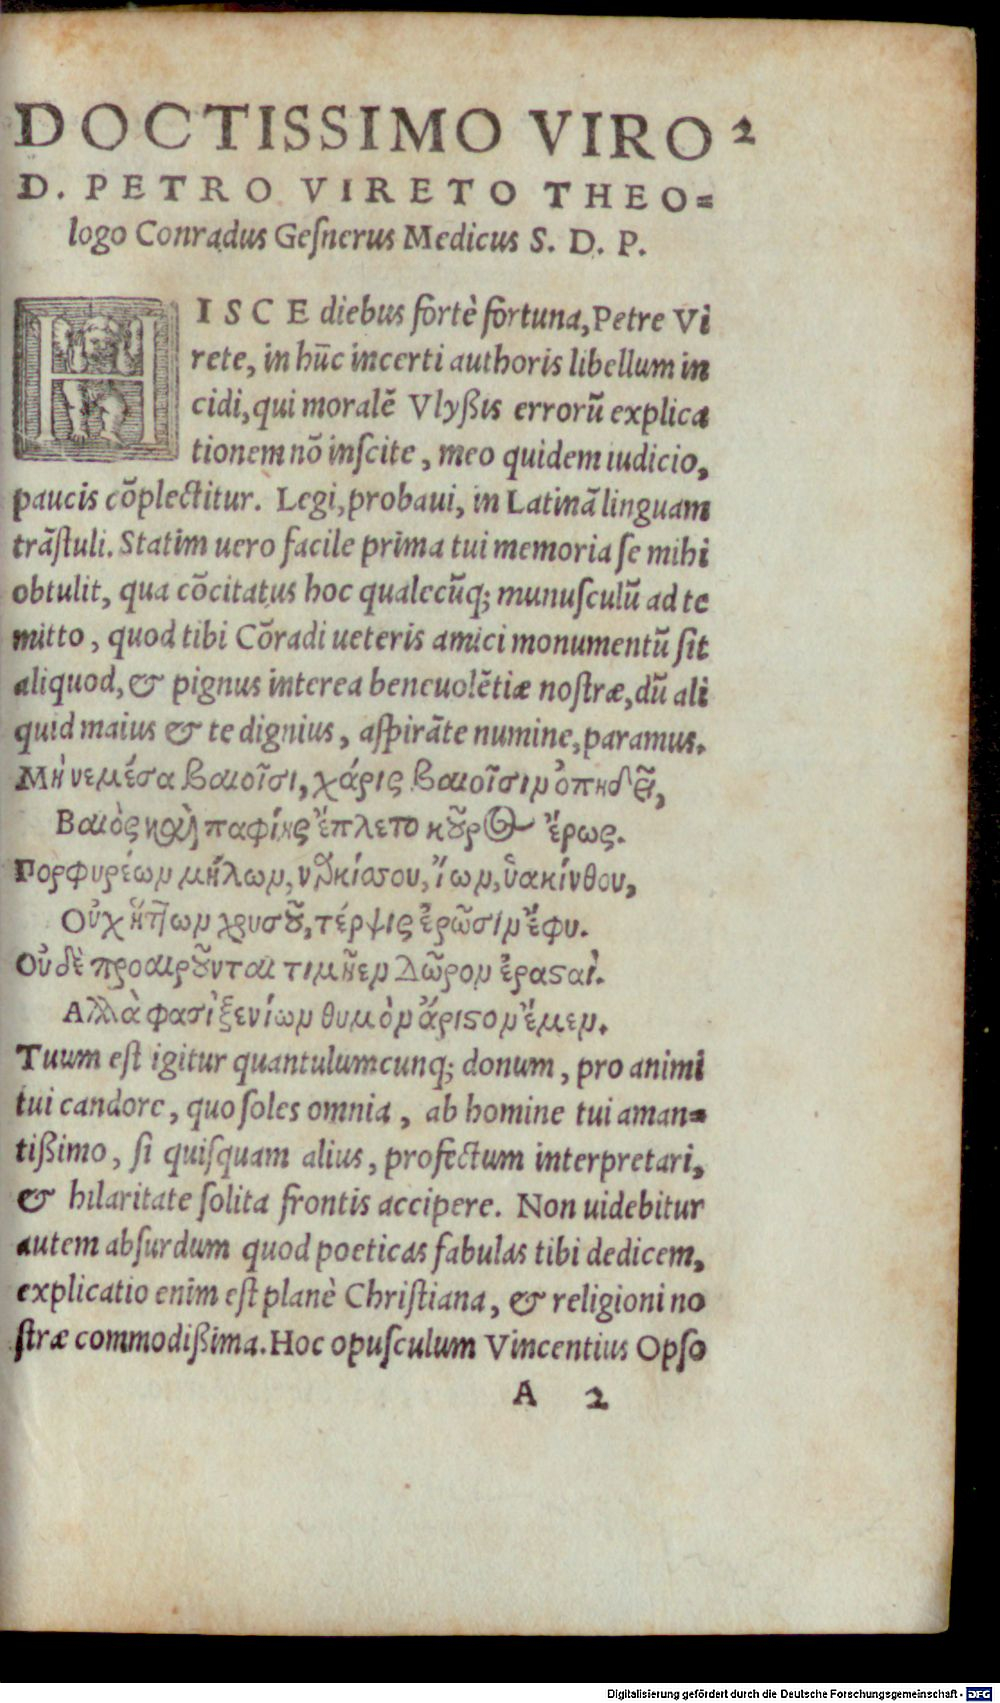 DOCTISSIMO VIRO 2
D. PETRO VIRETO THEO=
logo Conradus Geſnerus Medicus S. D. P.
HISCE diebus fortè fortuna, Petre Vi
rete, in hūc incerti authoris libellum in
cidi, qui moralē Vlyßis errorū explica
tionem nō inſcite, meo quidem iudicio,
paucis cōplectitur. Legi, probaui, in Latinā linguam
trāſtuli. Statim uero facile prima tui memoria ſe mihi
obtulit, qua cōcitatus hoc qualecūq; munuſculū ad te
mitto, quod tibi Cōradi ueteris amici monumentū ſit
aliquod, & pignus interea beneuolētiæ noſtræ, dū ali
quid maius & te dignius, aſpirāte numine, paramus.
Μὴ νεμέσα βαιοῖσι, χάρις βαιοῖσιν ὀπηδεῖ,
Βαιὸς καὶ παφίης ἔπλετο κοῦρος ἔρως.
Πορφυρέων μήλων, ναρκίσσου, ἴων, ὑακίνθου,
Οὐχ ἧττων χρυσοῦ, τέρψις ἐρῶσιν ἔφυ.
Οὐδὲ προαιροῦνται τιμῆεν δῶρον ἐρασαὶ.
Αλλὰ φασὶ ξενίων θυμὸν ἄριστον ἔμεν.
Tuum eſt igitur quantulumcunq; donum, pro animi
tui candore, quo ſoles omnia, ab homine tui aman=
tißimo, ſi quiſquam alius, profectum interpretari,
& hilaritate ſolita frontis accipere. Non uidebitur
autem abſurdum quod poeticas fabulas tibi dedicem,
explicatio enim eſt planè Chriſtiana, & religioni no
ſtræ commodißima. Hoc opuſculum Vincentius Opſo
A 2
Digitalisierung gefördert durch die Deutsche Forschungsgemeinschaft - DFG